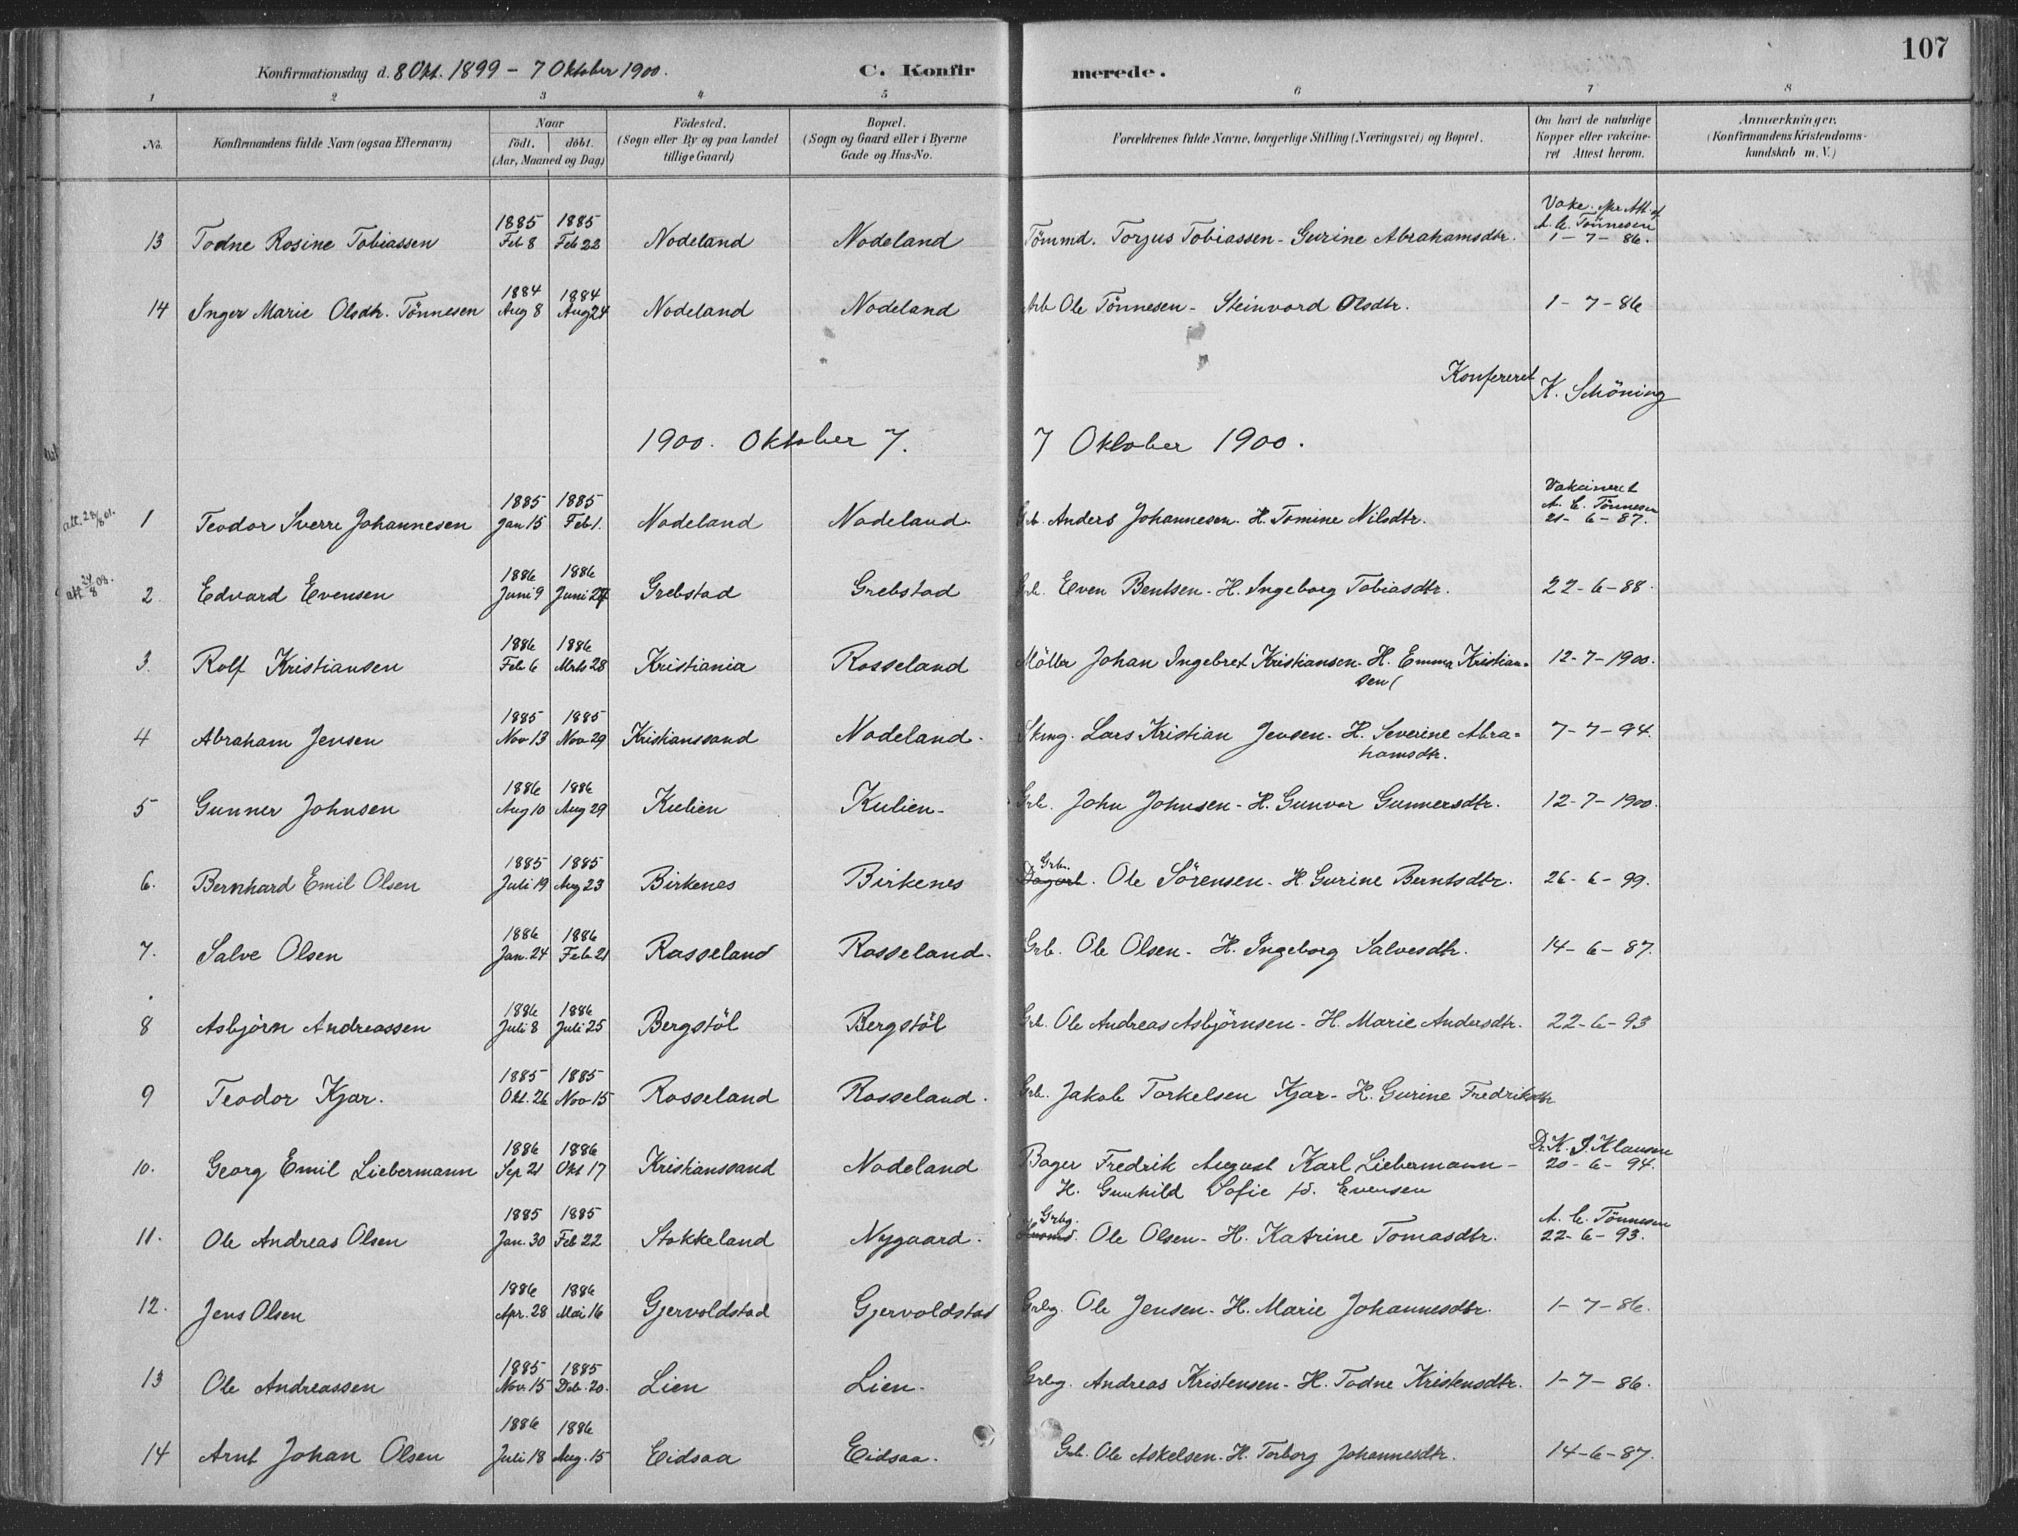 107
Konfirmationsdag d. 8 Okt. 1899 - 7 Oktober 1900. C. Konfir merede.
1 2 3 4 5 6 7 8
No. Konfirmandens fulde Navn (ogsaa Efternavn) Naar födt. döbt. (Aar, Maaned og Dag) Födested. (Sogn eller By og paa Landet tillige Gaard) Bopæl. (Sogn og Gaard eller i Byerne Gade og Hus-No. Forældrenes fulde Navne, borgerlige Stilling (Næringsvei) og Bopæl. Om havt de naturlige Kopper eller vakcineret Attest herom. Anmærkninger. (Konfirmandens Kristendomskundskab m. V.)
13 Todne Rosine Tobiassen 1885 Feb 8 1885 Feb 22 Nodeland Nodeland Tömmd. Torjus Tobiassen - Gurine Abrahamsdtr. Vakc. Att. af A. C. Tönnesen 1-7-86.
14 Inger Marie Olsdtr. Tönnesen 1884 Aug 8 1884 Aug 24 Nodeland Nodeland Arb Ole Tönnesen - Steinvord Olsdtr. 1-7-86
Konfereret K. Schöning
1900. Oktober 7. 7 Oktober 1900.
att. 28/8 01. 1 Teodor Sverre Johannesen 1885 Jan 15 1885 Feb 1. Nodeland Nodeland Anders Johannesen - H. Tomine Nilsdtr. Vakcineret A. C. Tönnesen 21-6-87.
att 24/8 08. 2 Edvard Evensen 1886 Juni 9 1886 Juni 27 Grebstad Grebstad Grb. Even Bentsen - H. Ingeborg Tobiasdtr. 22-6-88.
3. Rolf Kristiansen 1886 Feb 6 1886 Mrts 28 Kristiania Rosseland Möller Johan Ingebret Kristiansen - H. Emma Kristiansen 12-7-1900.
4 Abraham Jensen 1885 Nov 13 1885 Nov 29 Kristianssand Nodeland. Skmg. Lars Kristian Jensen - H. Severine Abrahamsdtr. 7-7-94.
5 Gunner Johnsen 1886 Aug 10 1886 Aug 29 Kulien Kulien Grb. John Johnsen - H. Gunvor Gunnersdtr. 12-7-1900.
6. Bernhard Emil Olsen 1885 Juli 19 1885 Aug 23 Birkenes Birkenes Grb. Ole Sörensen - H. Gurine Berntsdtr. 26-6-99.
7. Salve Olsen 1886 Jan. 24 1886 Feb 21 Rosseland Rosseland. Grb. Ole Olsen - H. Ingeborg Salvesdtr. 14-6-87.
8 Asbjörn Andreassen 1886 Juli 8 1886 Juli 25 Bergstöl Bergstöl Grb. Ole Andreas Asbjörnsen - H. Marie Andersdtr. 22-6-93
9 Teodor Kjær. 1885 Okt. 26 1885 Nov 15 Rosseland Rosseland. Grb. Jakob Torkelsen Kjær - H. Gurine Fredriksdtr
10. Georg Emil Liebermann 1886 Sep 21 1886 Okt 17 Kristianssand Nodeland Bager Fredrik August Karl Liebermann - H. Gunhild Sofie fö. Evensen Dr. K. J. Klausen 20-6-94.
11. Ole Andreas Olsen 1885 Jan. 30 1885 Feb 22 Stokkeland Nygaard. Grbg. Husmd. Ole Olsen - H. Katrine Tomasdtr. A. C. Tönnesen 22-6-93.
12. Jens Olsen 1886 Apr. 28 1886 Mai 16 Gjervoldstad Gjervoldstad Grbg. Ole Jensen - H. Marie Johannesdtr. 1-7-86.
13 Ole Andreassen 1885 Nov 15 1885 Deb. 20. Lien Lien. Grbg. Andreas Kristensen - H. Todne Kristensdtr. 1-7-86.
14 Arnt Johan Olsen 1886 Juli 18 1886 Aug. 15 Eidsaa Eidsaa. Grb. Ole Askelsen - H. Torborg Johannesdtr. 14-6-87.